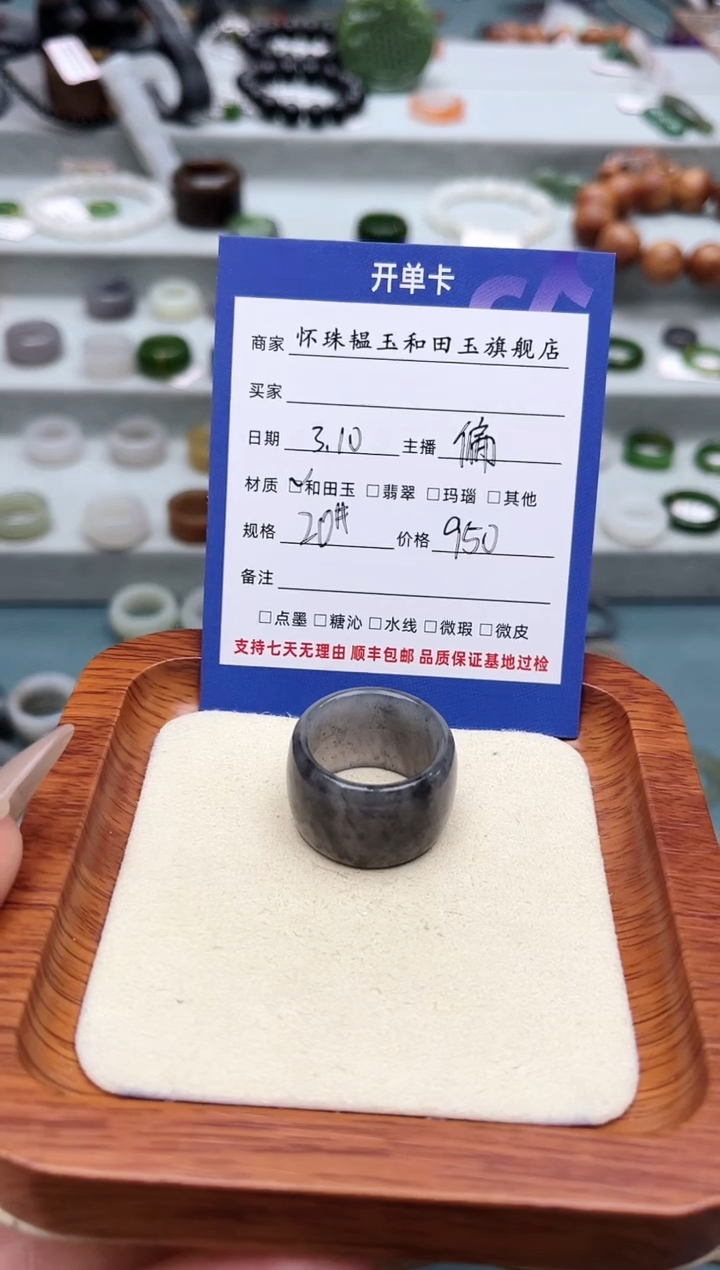 开单卡
商家 怀珠韫玉和田玉旗舰店
买家
日期 3.10 主播 偏
材质 ☑和田玉 □翡翠 □玛瑙 □其他
规格 20# 价格 950
备注
□点墨 □糖沁 □水线 □微瑕 □微皮
支持七天无理由 顺丰包邮 品质保证基地过检